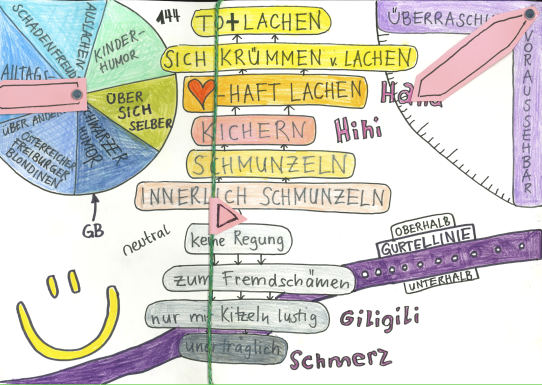 144
TO+LACHEN
SICH KRÜMMEN v. LACHEN
-HAFT LACHEN
Haha
KICHERN
Hihi
SCHMUNZELN
INNERLICH SCHMUNZELN
neutral
keine Regung
zum Fremdschämen
nur mit Kitzeln lustig
Giligili
unerträglich
Schmerz
SCHADENFREUDE
AUSLACHEN
KINDER-
HUMOR
ALLTAGS-
ÜBER
SICH
SELBER
SCHWARZER
HUMOR
ÜBER ANDERE
ÖSTERREICHER
FREIBURGER
BLONDINEN
GB
ÜBERRASCHU
VORAUSSEHBAR
OBERHALB
GÜRTELLINIE
UNTERHALB